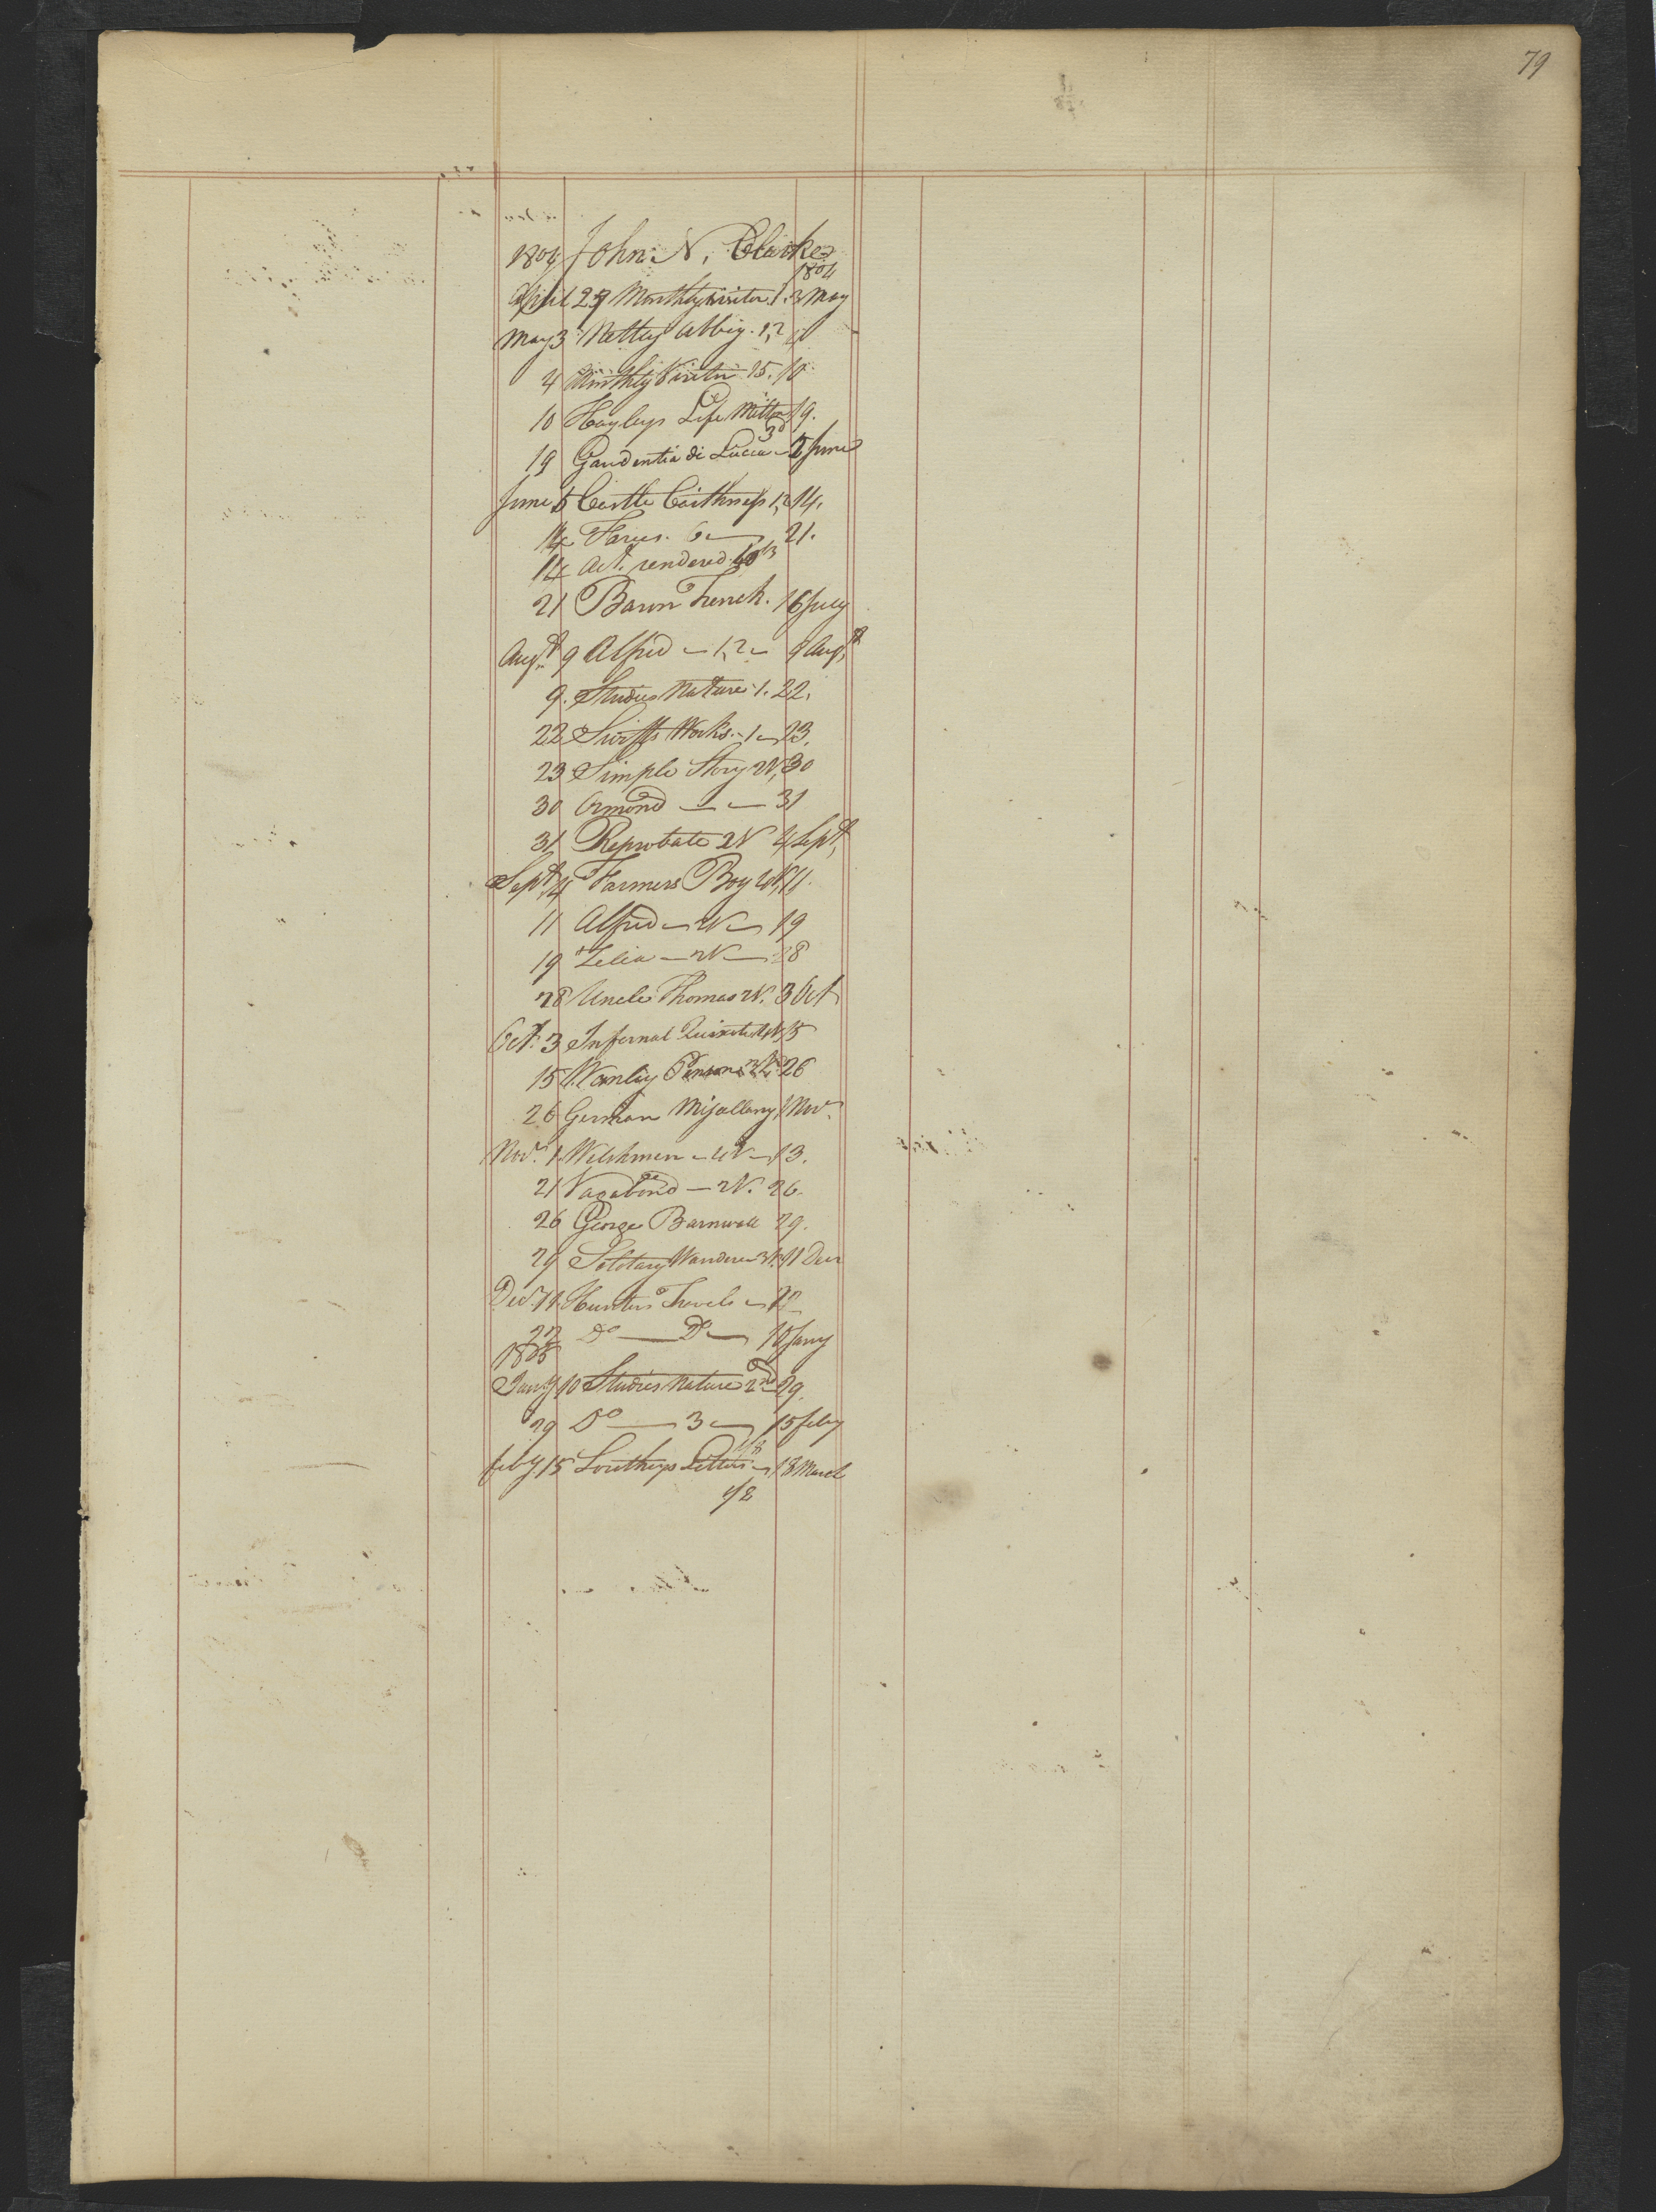 79
1804 John N. Clarke
1804
April 27 Monthly visitor 1. 3 May
May 3 Netley Abbey. 1,2
4 Monthly Visitor 15. 10
10 Hayleys Life Milton 19.
19 Gaudentia di Lucca 5 June
June 5 Castle Caithness 1,2 14.
14 Farces. 6 — 21.
14 Act. rendered
21 Baron Trenck. 16 July
Augt. 9 Alfred — 1,2 — 9 Augt.
9. Studies Nature 1. 22.
22 Swifts Works. — 1 — 23.
23 Simple Story 2V. 30
30 Ormond — — 31
31 Reprobate 2V 4 Sept,
Sept, 4 Farmers Boy 4V. 11.
11 Alfred — 2V — 19
19 Zelia — 2V — 28
28 Uncle Thomas 2V. 3 Oct
Oct. 3 Infernal Quixote 4V. 15
15 Wanley Penson 26
26 German Misellany 1 Nov.
Nov. 1. Welshmen — 4V — 13.
21 Vagabond — 2V. 26.
26 George Barnwell 29.
29 Solitary Wanderer 3V. 11 Decr
Decr. 11. Hunters Travels — 22
22 Do — Do — 10 Jany
1805
Jany 10 Studies Nature 2nd 29.
29 Do — 3 — 15 feby
feby. 15 Southeys Letters — 13 March
1/2